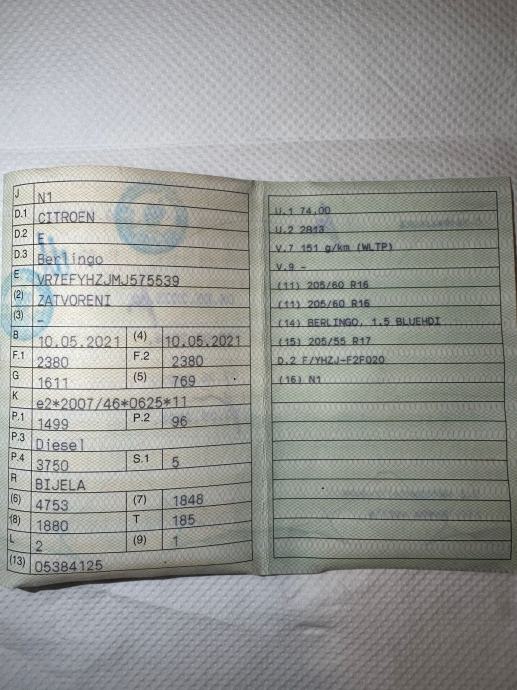 J N1
D.1 CITROEN
D.2 E
D.3 Berlingo
E VR7EFYHZJMJ575539
(2) ZATVORENI
(3) -
B 10.05.2021 (4) 10.05.2021
F.1 2380 F.2 2380
G 1611 (5) 769
K e2*2007/46*0625*11
P.1 1499 P.2 96
P.3 Diesel
P.4 3750 S.1 5
R BIJELA
(6) 4753 (7) 1848
(8) 1880 T 185
L 2 (9) 1
(13) 05384125
U.1 74.00
U.2 2813
V.7 151 g/km (WLTP)
V.9 -
(11) 205/60 R16
(11) 205/60 R16
(14) BERLINGO, 1.5 BLUEHDI
(15) 205/55 R17
D.2 F/YHZJ-F2F020
(16) N1